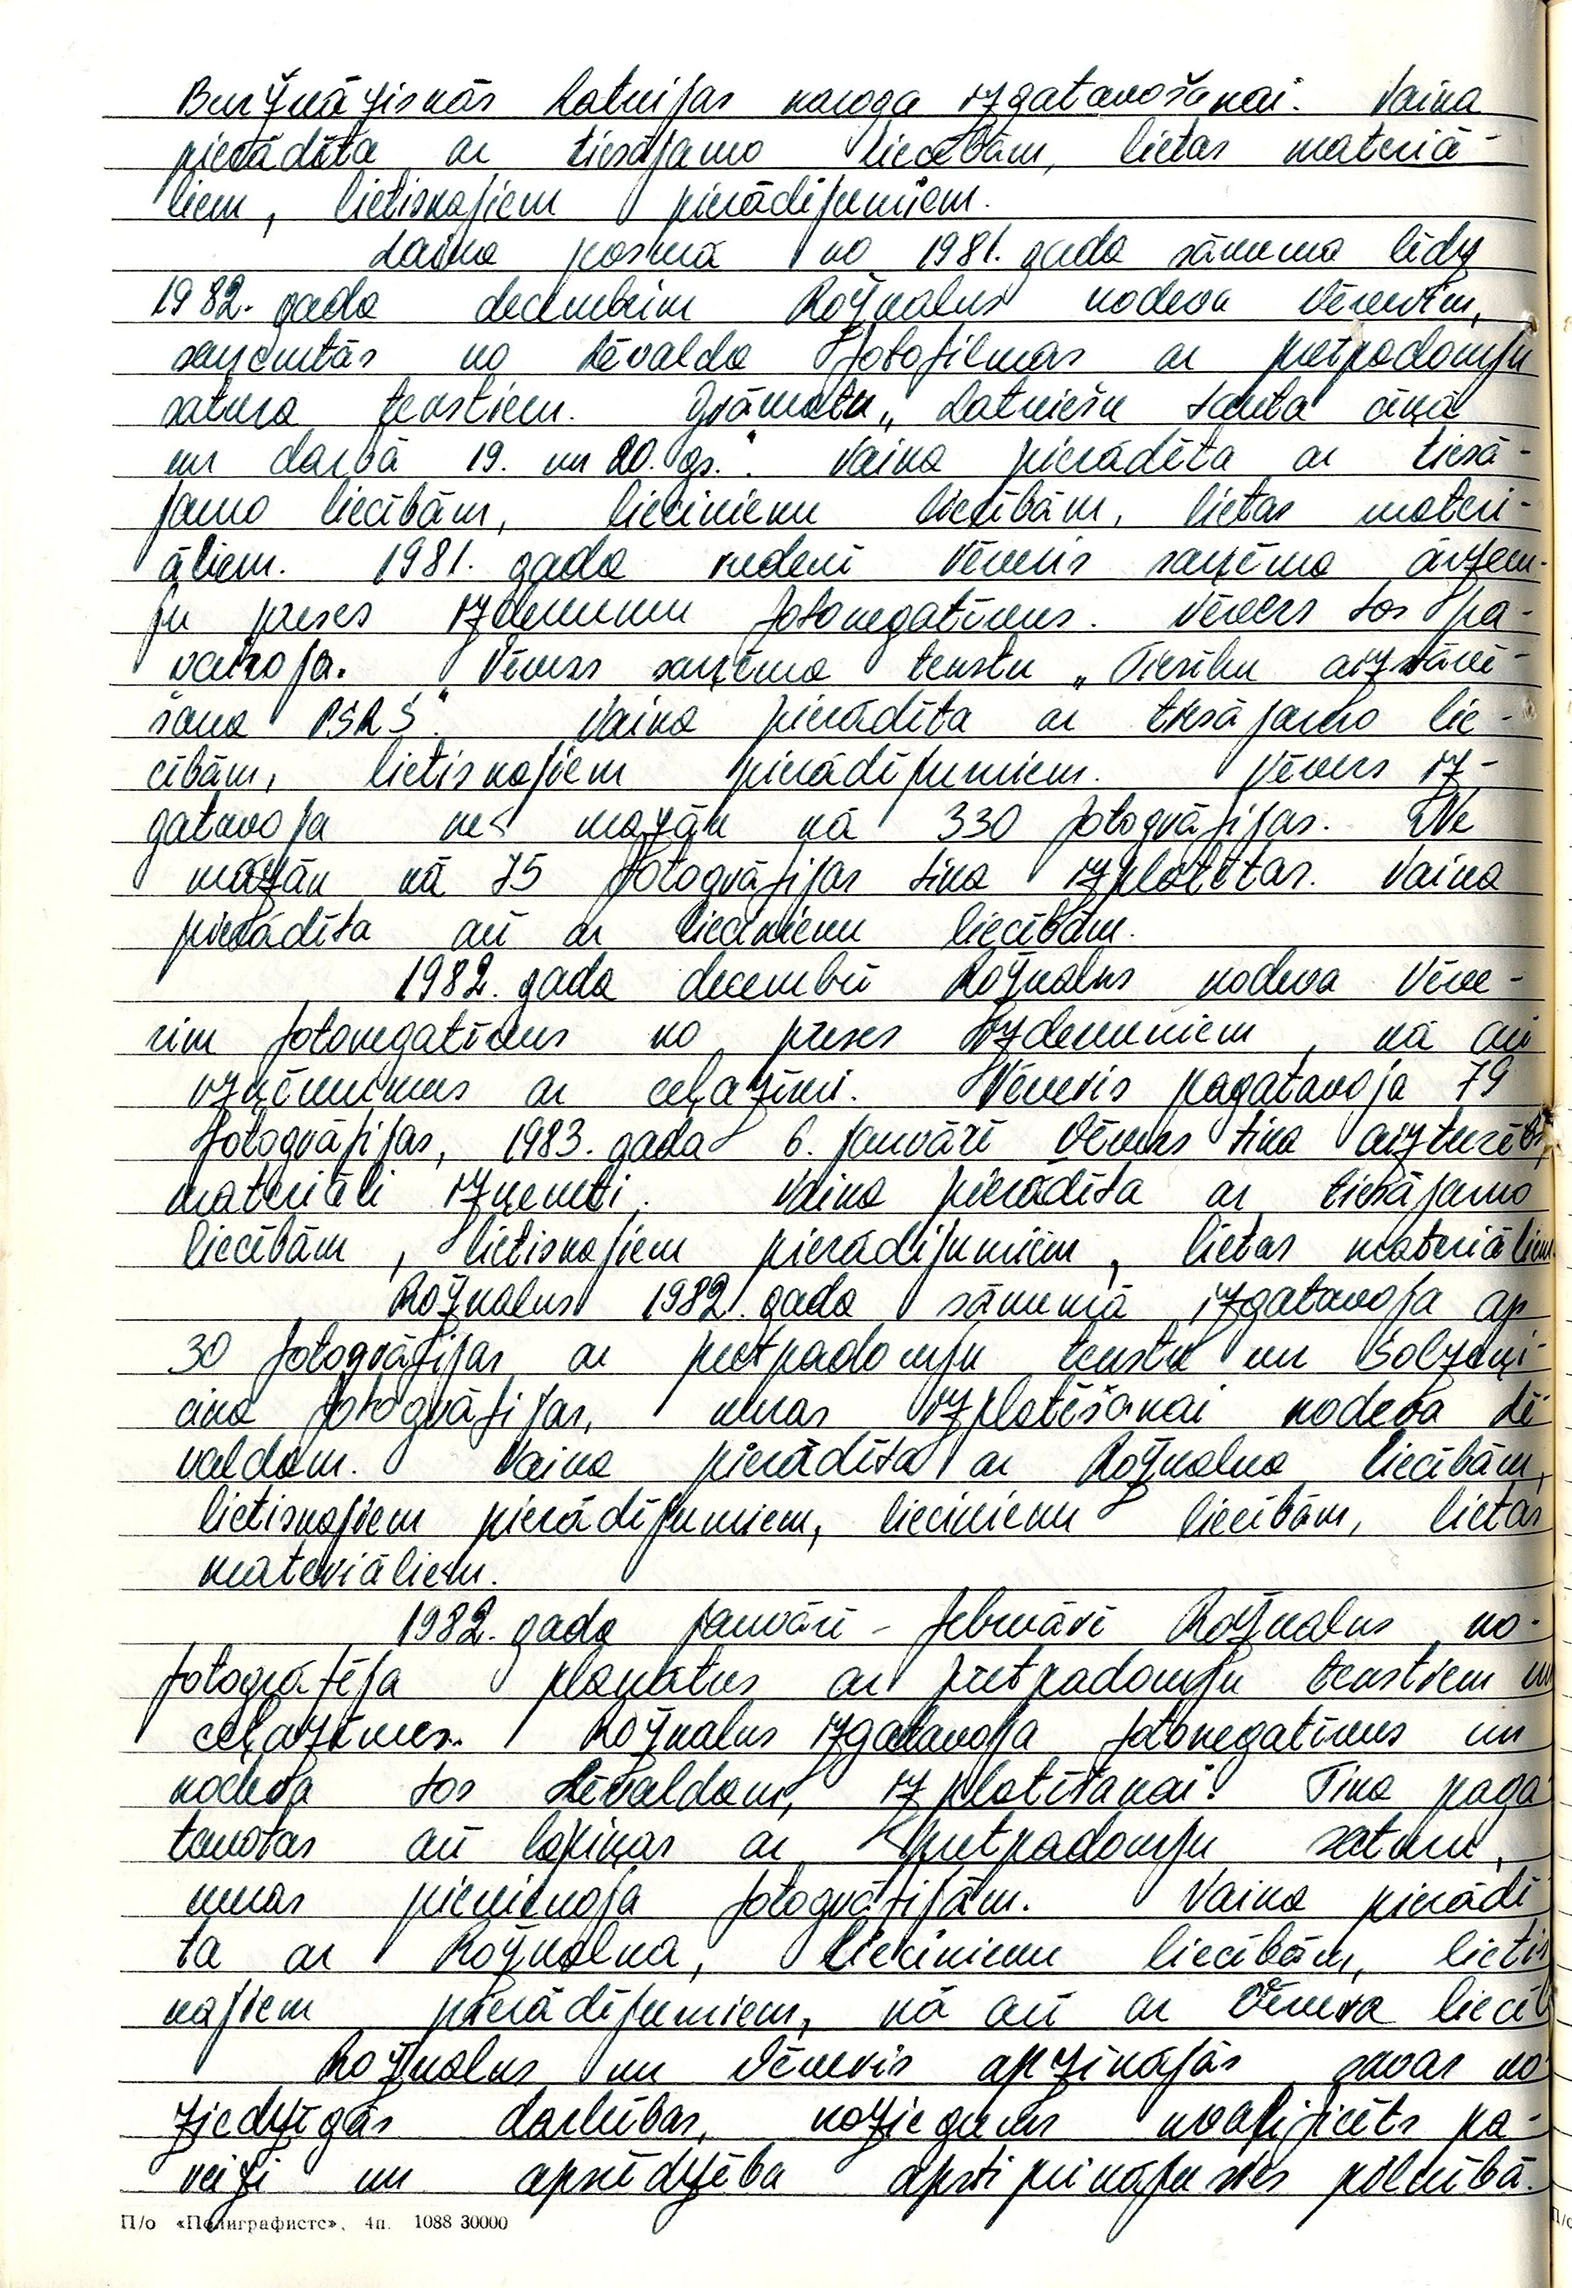 Buržuāziskās Latvijas karoga izgatavošanai. Vaina
pierādīta ar tiesājamo liecībām, lietas materiā-
liem, lietiskajiem pierādījumiem.
Laika posmā no 1981. gada sākuma līdz
1982. gada decembrim Rožkalns nodeva Vēverim,
saņemtās no Lēvalda fotofilmas ar pretpadomju
satura tekstiem. Grāmatu „Latviešu tauta cīņā
un darbā 19. un 20. gs.". Vaina pierādīta ar tiesā-
jamo liecībām, liecinieku liecībām, lietas materi-
āliem. 1981. gada rudenī Vēveris saņēma ārzem-
ju preses izdevumu fotonegatīvus. Vēvers tos pa-
vairoja. Vēvers saņēma tekstu „Tiesību aizstāvē-
šana PSRS". Vaina pierādīta ar tiesājamo lie-
cībām, lietiskajiem pierādījumiem. Vēvers iz-
gatavoja ne mazāk kā 330 fotogrāfijas. Ne
mazāk kā 75 fotogrāfijas tika izplatītas. Vaina
pierādīta arī ar liecinieku liecībām.
1982. gada decembrī Rožkalns nodeva Vēve-
rim fotonegatīvus no preses izdevumiem, kā arī
uzņēmumus ar ceļazīmi. Vēveris pagatavoja 79
fotogrāfijas, 1983. gada 6. janvārī Vēvers tika aizturēts,
materiāli izņemti. Vaina pierādīta ar tiesājamo
liecībām, lietiskajiem pierādījumiem, lietas materiāliem.
Rožkalns 1982. gada sākumā izgatavoja ap
30 fotogrāfijas ar pretpadomju tekstu un Solžeņi-
cina fotogrāfijas, kuras izplatīšanai nodeva Lē-
valdam. Vaina pierādīta ar Rožkalna liecībām,
lietiskajiem pierādījumiem, liecinieku liecībām, lietas
materiāliem.
1982. gada janvārī - februārī Rožkalns no-
fotografēja plakātus ar pretpadomju tekstiem un
ceļazīmes. Rožkalns izgatavoja fotonegatīvus un
nodeva tos Lēvaldam, izplatīšanai. Tika paga-
tavotas arī lapiņas ar pretpadomju saturu,
kuras pievienoja fotogrāfijām. Vaina pierādī
ta ar Rožkalna, liecinieku liecībām, lietis
kajiem pierādījumiem, kā arī ar Vēvera liecīb
Rožkalns un Vēveris apzinājās savas no
ziedzīgās darbības, noziegums kvalificēts pa-
reizi un apsūdzība apstiprinājusies pilnībā.
П/о «Полиграфистс», 4п. 1088 30000